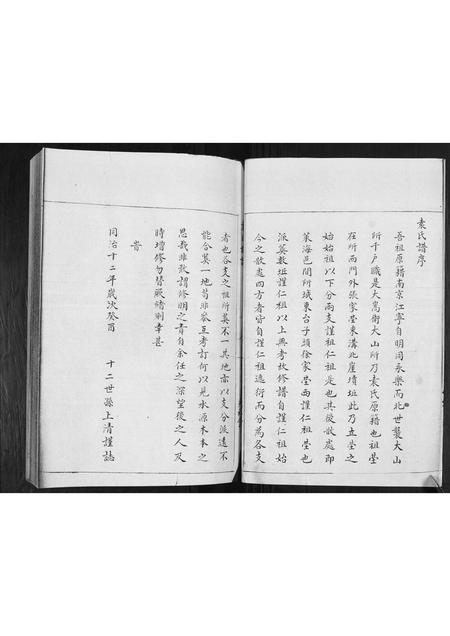 袁氏譜序
吾祖原籍南京江寧自明同永樂而北世襲大山
所千戶職是大嵩衛大山所乃袁氏原籍也祖塋
在所西門外張家塋東溝北崖墳址此乃立塋之
始始祖以下分兩支謹祖仁祖是也其後散處即
萊海邑間所城東台子頭徐家塋西謹仁祖塋也
派冀數址謹仁祖以上無考故修譜自謹仁祖始
今之散處四方者皆自謹仁祖遠衍而分為各支
者也各支之祖所冀不一其地亦以支分派遠不
能合冀一地苟非參互考訂何以見水源木本之
思哉非敢謂修明之責自余任之深望後之人及
時增修勿替厥緒則幸甚
時
同治十二年歲次癸酉 十二世孫上清謹誌